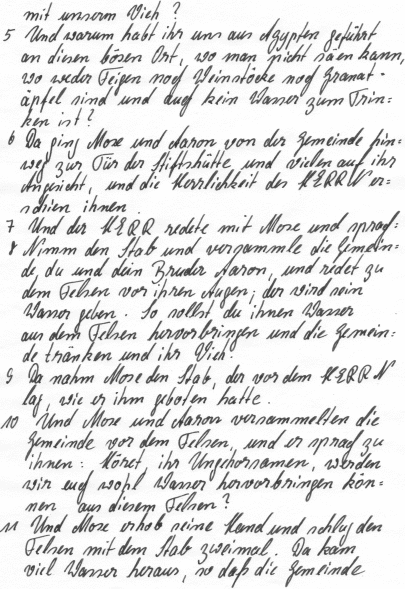 mit unserm Vieh?
5 Und warum habt ihr uns aus Ägypten geführt
an diesen bösen Ort, wo man nicht säen kann,
wo weder Feigen noch Weinstöcke noch Granat-
äpfel sind und auch kein Wasser zum Trin=
ken ist?
6 Da ging Mose und Aaron von der Gemeinde hin=
weg zur Tür der Stiftshütte und vielen auf ihr
Angesicht, und die Herrlichkeit des HERRN er=
schien ihnen.
7 Und der HERR redete mit Mose und sprach:
8 Nimm den Stab und versammle die Gemein=
de, du und dein Bruder Aaron, und redet zu
dem Felsen vor ihren Augen; der wird sein
Wasser geben. So sollst du ihnen Wasser
aus dem Felsen hervorbringen und die Gemein=
de tränken und ihr Vieh.
9 Da nahm Mose den Stab, der vor dem HERRN
lag, wie er ihm geboten hatte.
10 Und Mose und Aaron versammelten die
Gemeinde vor dem Felsen, und er sprach zu
ihnen: Höret, ihr Ungehorsamen, werden
wir euch wohl Wasser hervorbringen kön=
nen aus diesem Felsen?
11 Und Mose erhob seine Hand und schlug den
Felsen mit dem Stab zweimal. Da kam
viel Wasser heraus, so daß die Gemeinde